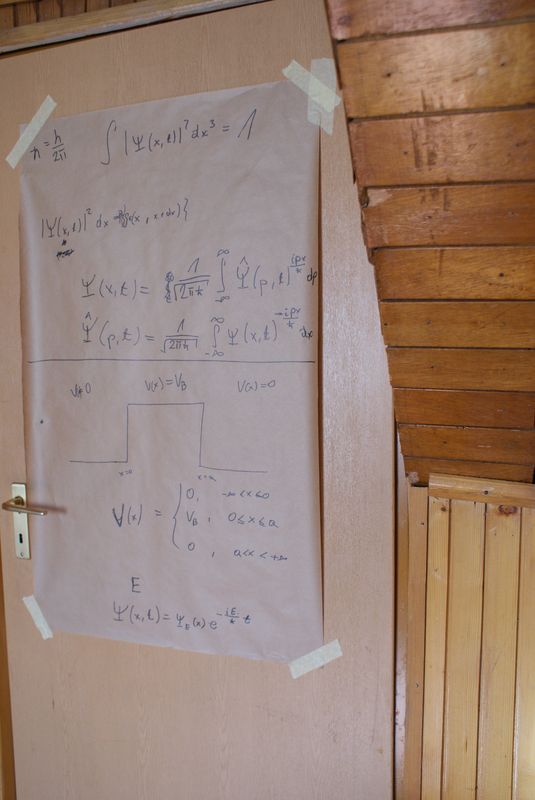 ħ = h/2π ∫ |Ψ(x,t)|² dx³ = 1
|Ψ(x,t)|² dx (x, x+dx)}
Ψ(x,t) = 1/√2πħ ∫_{-∞}^{∞} Ψ̂(p,t)^{ipx/ħ} dp
Ψ̂(p,t) = 1/√2πħ ∫_{-∞}^{∞} Ψ(x,t)^{-ipx/ħ} dx
V(x)=V_B V(x)=0
x=0 x=a
V(x) = { 0, -∞<x≤0
V_B, 0≤x≤a
0, a<x<+∞
E
Ψ(x,t) = Ψ_E(x) e^{-iE/ħ t}